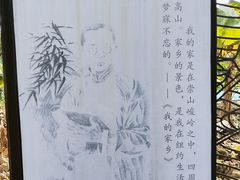 我的家是在崇山峻岭之中，四周
高山。家乡的景色，是我在纽约生活
梦寐不忘的。——《我的家乡》